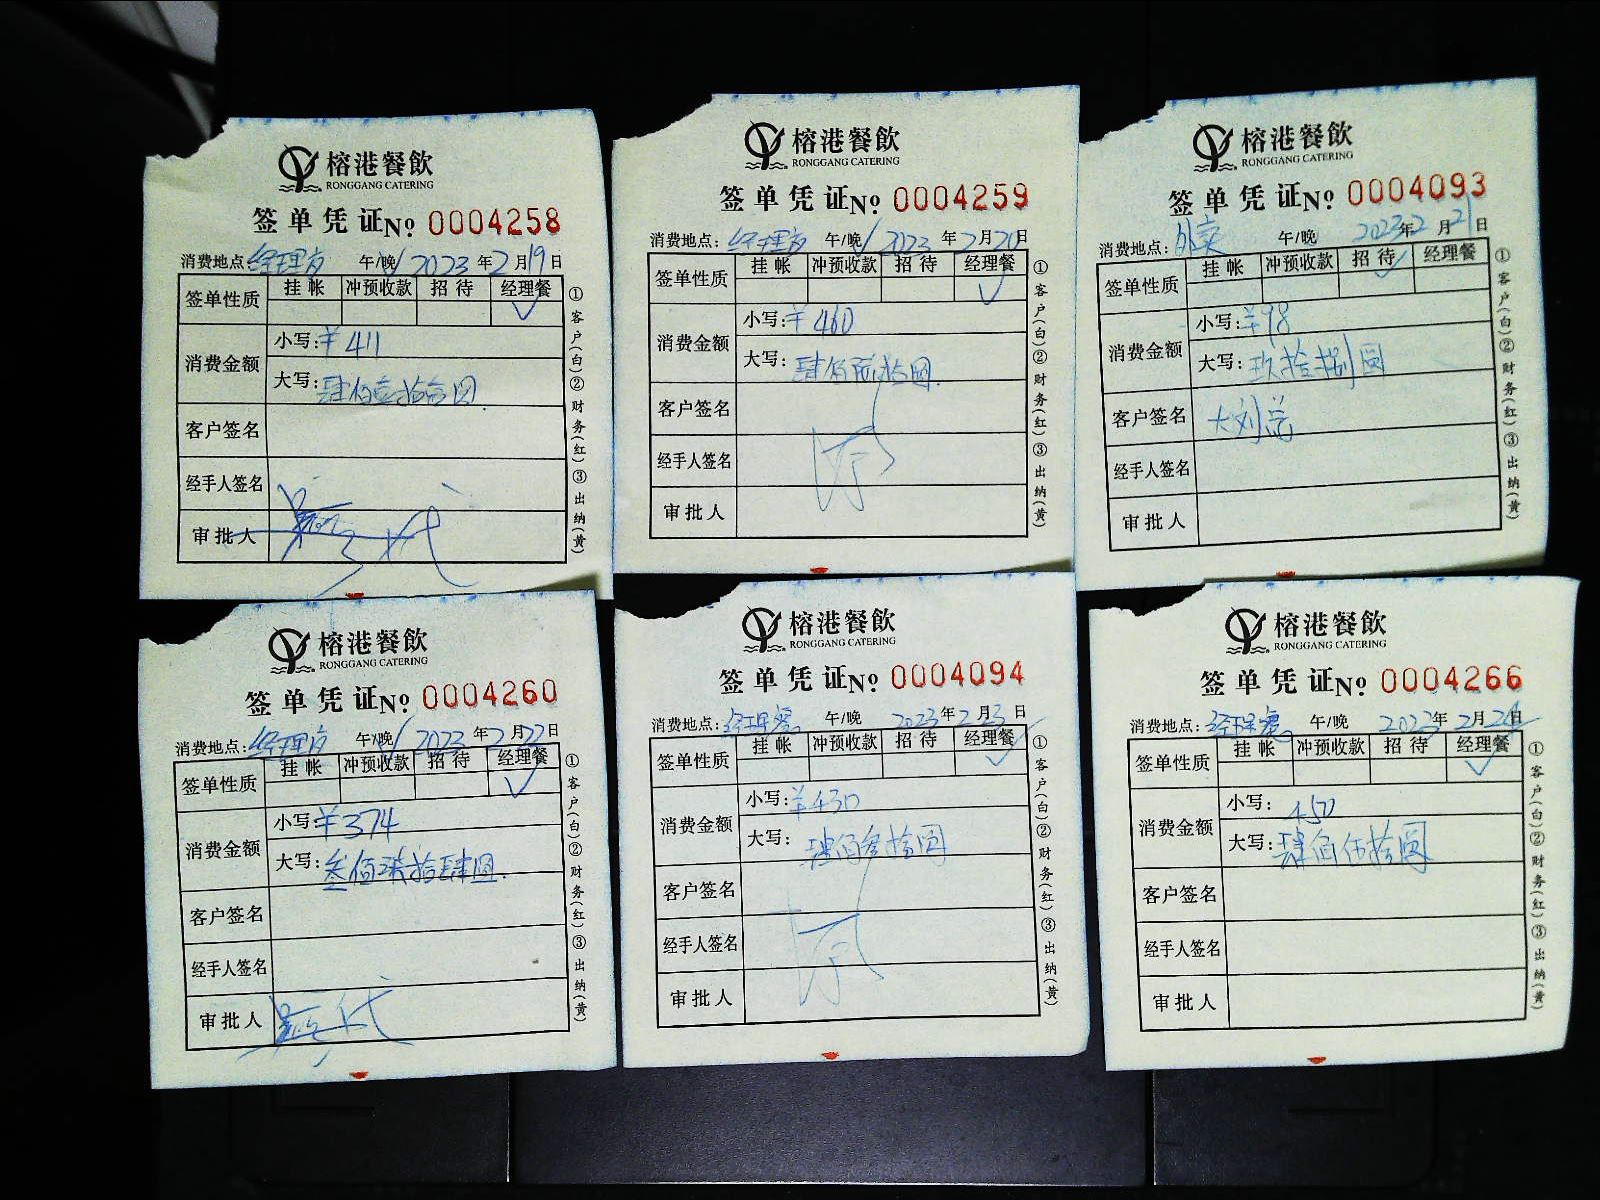 榕港餐飲
RONGGANG CATERING
签单凭证 No 0004258
消费地点: 经理房 午/晚 √ 2023年2月19日
签单性质 挂帐 冲预收款 招待 经理餐 √
消费金额 小写: ¥411
大写: 肆佰壹拾壹圆
客户签名
经手人签名
审批人
①客户(白)②财务(红)③出纳(黄)
榕港餐飲
RONGGANG CATERING
签单凭证 No 0004259
消费地点: 经理房 午/晚 √ 2023年2月20日
签单性质 挂帐 冲预收款 招待 经理餐 √
消费金额 小写: ¥460
大写: 肆佰陆拾圆.
客户签名
经手人签名
审批人
①客户(白)②财务(红)③出纳(黄)
榕港餐飲
RONGGANG CATERING
签单凭证 No 0004093
消费地点: 外卖 午/晚 2023年2月21日
签单性质 挂帐 冲预收款 招待 √ 经理餐
消费金额 小写: ¥98
大写: 玖拾捌圆
客户签名 大刘总
经手人签名
审批人
①客户(白)②财务(红)③出纳(黄)
榕港餐飲
RONGGANG CATERING
签单凭证 No 0004260
消费地点: 经理房 午/晚 √ 2023年2月22日
签单性质 挂帐 冲预收款 招待 经理餐 √
消费金额 小写: ¥374
大写: 叁佰柒拾肆圆.
客户签名
经手人签名
审批人
①客户(白)②财务(红)③出纳(黄)
榕港餐飲
RONGGANG CATERING
签单凭证 No 0004094
消费地点: 经理餐 午/晚 2023年2月23日
签单性质 挂帐 冲预收款 招待 经理餐 √
消费金额 小写: ¥430
大写: 肆佰叁拾圆
客户签名
经手人签名
审批人
①客户(白)②财务(红)③出纳(黄)
榕港餐飲
RONGGANG CATERING
签单凭证 No 0004266
消费地点: 经理餐 午/晚 2023年2月24日
签单性质 挂帐 冲预收款 招待 经理餐 √
消费金额 小写: 450
大写: 肆佰伍拾圆
客户签名
经手人签名
审批人
①客户(白)②财务(红)③出纳(黄)